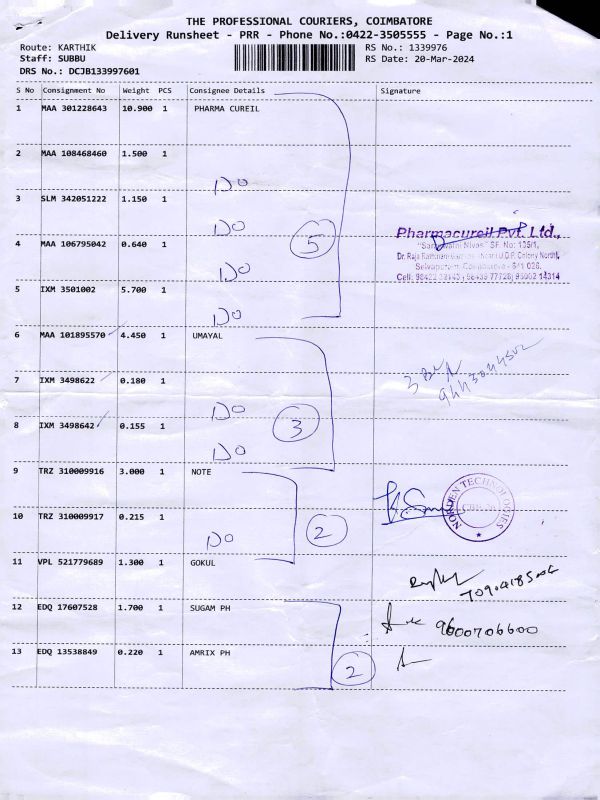 THE PROFESSIONAL COURIERS, COIMBATORE
Delivery Runsheet - PRR - Phone No.:0422-3505555 - Page No.:1
Route: KARTHIK RS No.: 1339976
Staff: SUBBU RS Date: 20-Mar-2024
DRS No.: DCJB133997601
S No Consignment No Weight PCS Consignee Details Signature
1 MAA 301228643 10.900 1 PHARMA CUREIL
2 MAA 108468460 1.500 1
Do
3 SLM 342051222 1.150 1
Do
5
Pharmacureil Pvt. Ltd.,
4 MAA 106795042 0.640 1
Do
5 IXM 3501002 5.700 1
Do
6 MAA 101895570 4.450 1 UMAYAL
7 IXM 3498622 0.180 1
Do
3
8 IXM 3498642 0.155 1
Do
9 TRZ 310009916 3.000 1 NOTE
NORDEN TECHNOLOGIES
10 TRZ 310009917 0.215 1
Do
2
11 VPL 521779689 1.300 1 GOKUL
12 EDQ 17607528 1.700 1 SUGAM PH
9600706600
13 EDQ 13538849 0.220 1 AMRIX PH
2